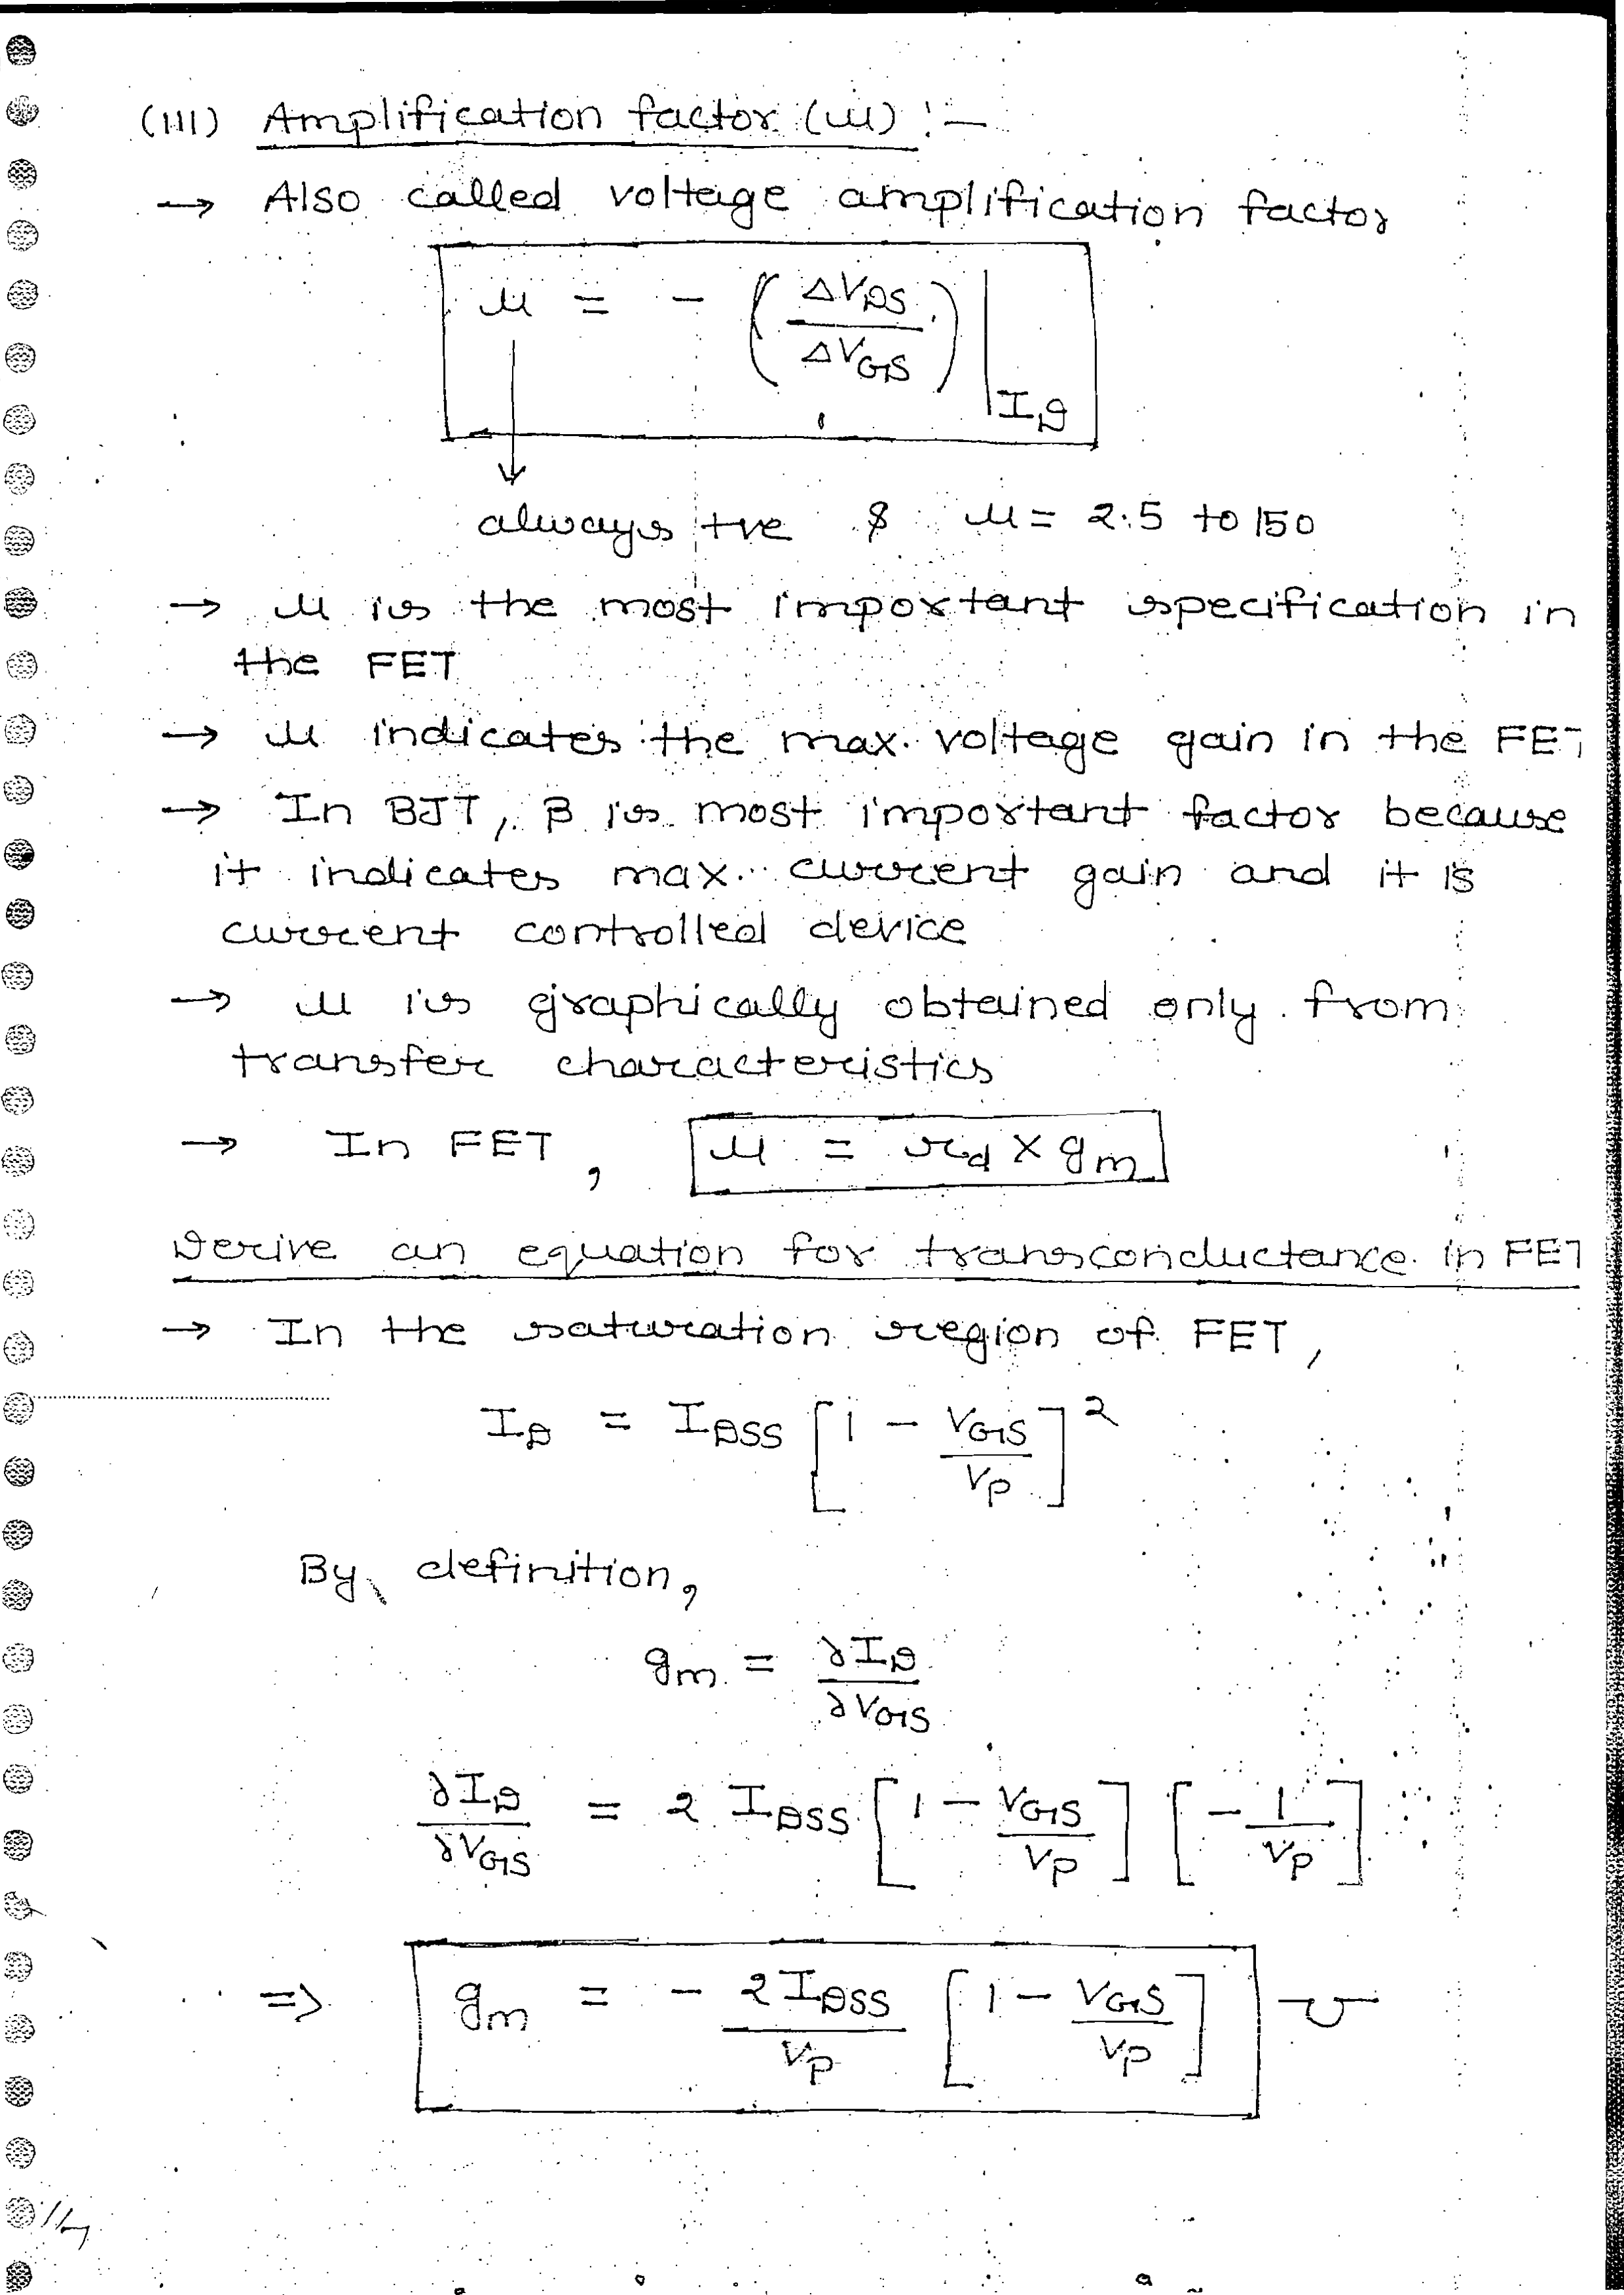 (III) Amplification factor (μ) :-
→ Also called voltage amplification factor
μ = - (ΔV_DS / ΔV_GS) | I_D
always +ve & μ = 2.5 to 150
→ μ is the most important specification in
the FET
→ μ indicates the max. voltage gain in the FET
→ In BJT, β is most important factor because
it indicates max. current gain and it is
current controlled device
→ μ is graphically obtained only from
transfer characteristics
→ In FET, μ = r_d × g_m
Derive an equation for transconductance in FET
→ In the saturation region of FET,
I_D = I_DSS [1 - V_GS / V_P]²
By definition,
g_m = ∂I_D / ∂V_GS
∂I_D / ∂V_GS = 2 I_DSS [1 - V_GS / V_P] [-1 / V_P]
⇒ g_m = - 2I_DSS / V_P [1 - V_GS / V_P] ℧